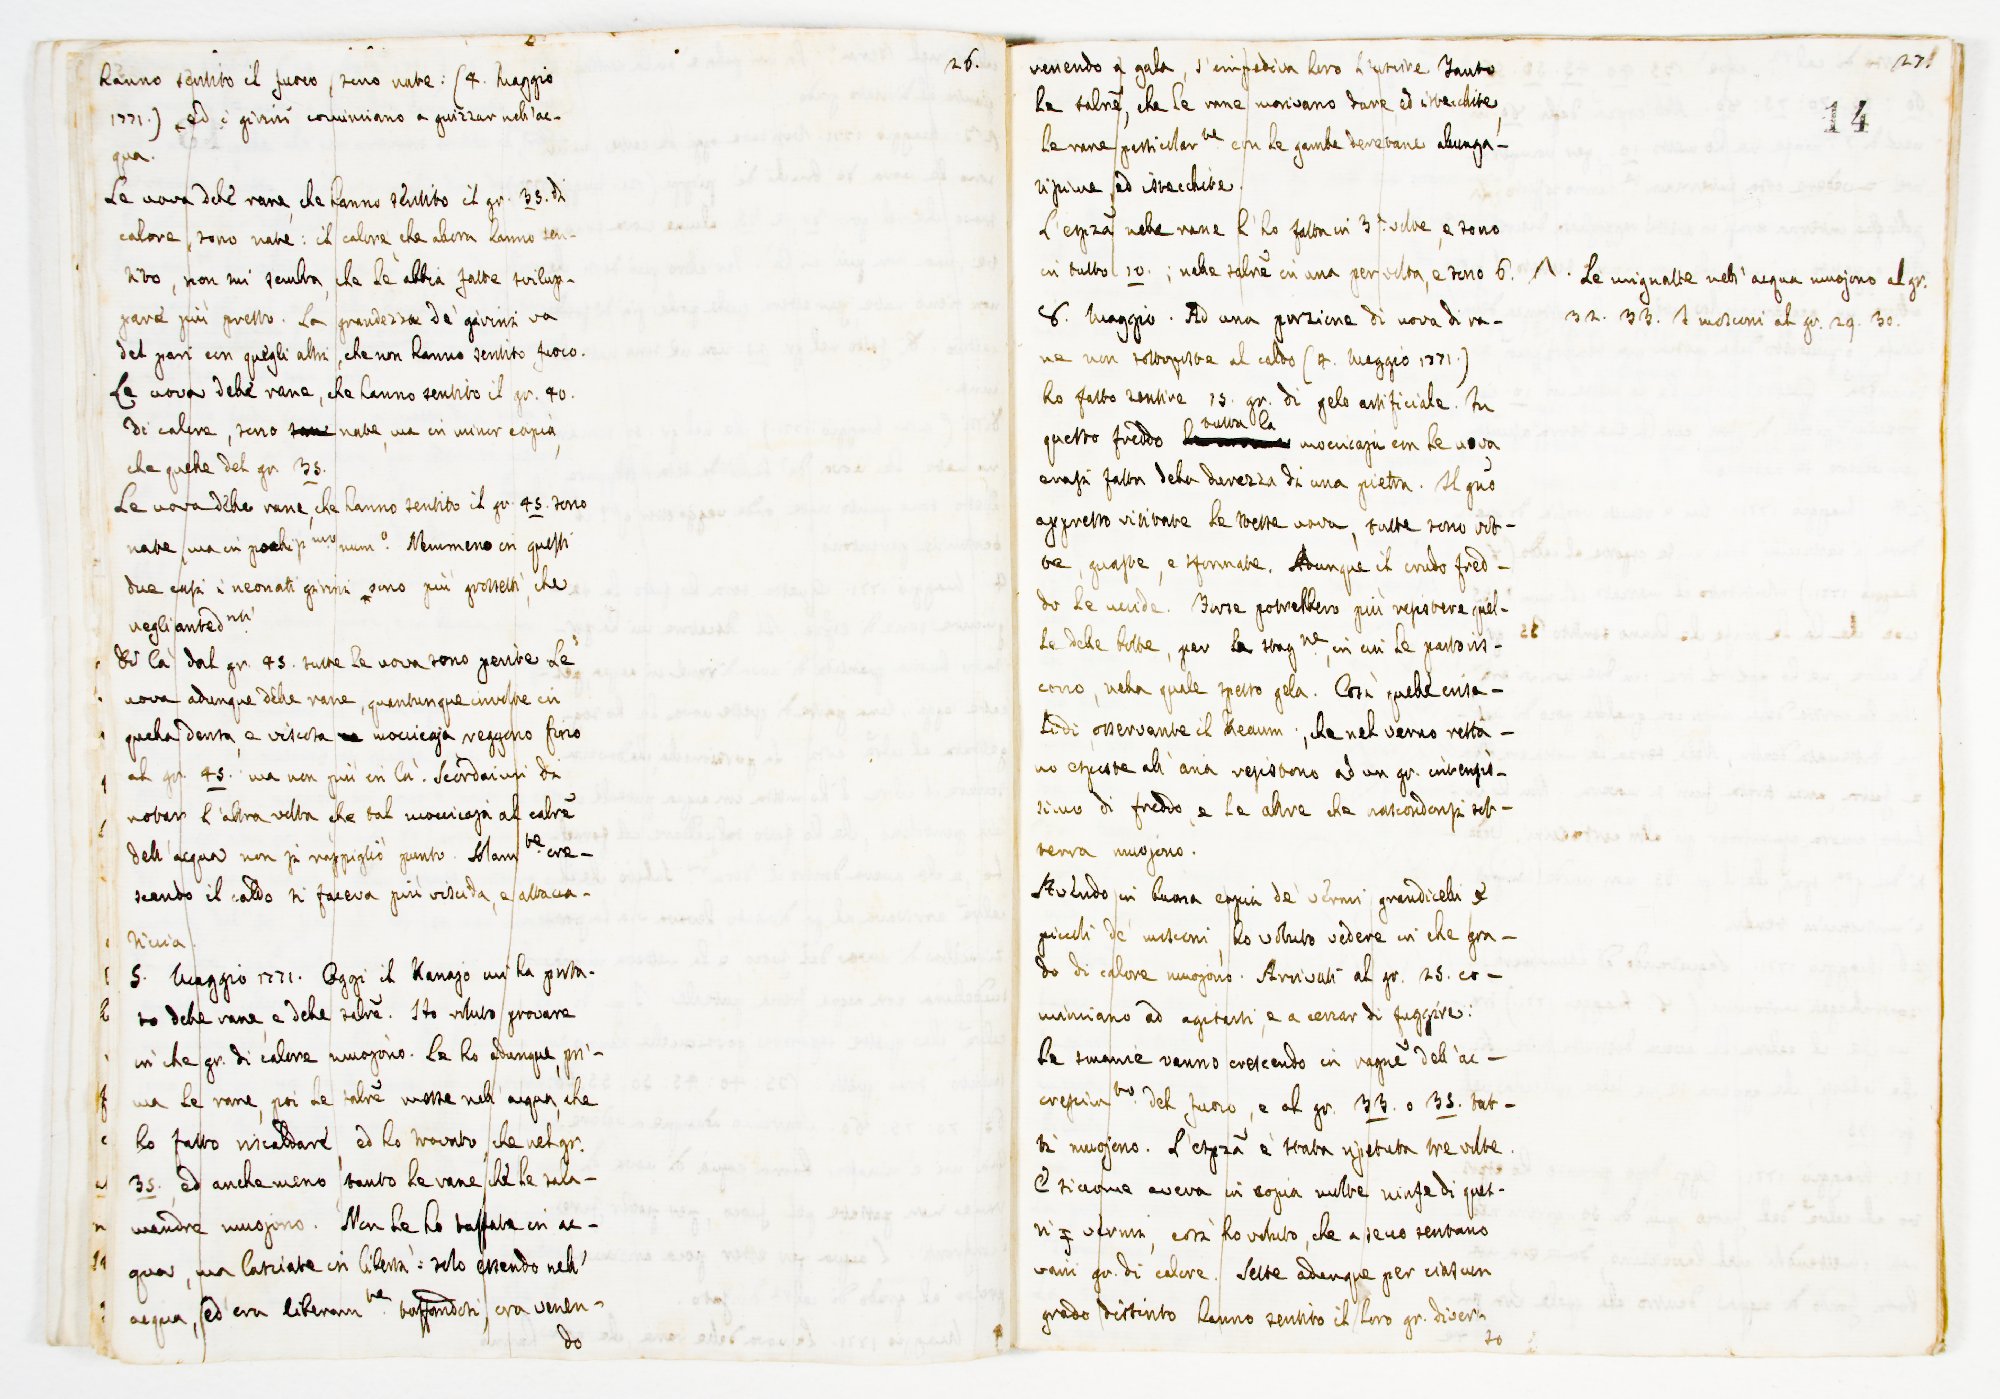 26.
hanno sentito il fuoco, sono nate: (4. Maggio
1771.) ed i girini cominciano a guizzar nell'ac-
qua.
Le uova delle rane, che hanno sentito il gr. 35. di
calore, sono nate: il calore che allora hanno sen-
tito, non mi sembra, che le abbia fatte svilup-
pare più presto. La grandezza de' girini va
del pari con quegli altri, che non hanno sentito fuoco.
Le uova delle rane, che hanno sentito il gr. 40.
di calore, sono nate, ma in minor copia,
che quelle del gr. 35.
Le uova delle rane, che hanno sentito il gr. 45. sono
nate, ma in pochiss.mo num.o. Nemmeno in questi
due casi i neonati girini sono più grossetti, che
negli anted.nti
Di là dal gr. 45. tutte le uova sono perite. Le
uova adunque delle rane, quantunque involte in
quella densa, e viscosa moccicaja reggono fino
al gr. 45. ma non più in là. Scordaimi di
notar l'altra volta che tal moccicaja al calrẽ
dell'acqua non si rappigliò punto. Solam.te cre-
scendo il caldo si faceva più viscida, e attacca-
ticcia.
5. Maggio 1771. Oggi il Ranajo mi ha porta-
to delle rane, e delle salrẽ. Ho voluto provare
in che gr. di calore muojono. Le ho adunque, pri-
ma le rane, poi le salrẽ messe nell'acqua, che
ho fatto riscaldare, ed ho trovato, che nel gr.
35. ed anche meno tanto le rane, che le sala-
mandre muojono. Non le ho tuffate in ac-
qua, ma lasciate in libertà: solo essendo nell'
acqua, ed ora liberam.te tuffandosi, ora venen-
do
27.
14
venendo a galla, s'impediva loro l'uscire. Tanto
le salrẽ, che le rane morivano dure, ed istecchite,
le rane particolar.te con le gambe deretane allunga-
tissime, ed istecchite.
L'espzã nelle rane l'ho fatta in 3. volte, e sono
in tutto 10.; nelle salrẽ in una per volta, e sono 6.
Le mignatte nell'acqua muojono al gr.
32. 33. I mosconi al gr. 29. 30.
6. Maggio. Ad una porzione di uova di ra-
ne non sottoposte al caldo (4. Maggio 1771.)
ho fatto sentire 15. gr. di gelo artificiale. In
questo freddo tutta la moccicaja con le uova
erasi fatta della durezza di una pietra. Il gno
appresso visitate le stesse uova, tutte sono rot-
te, guaste, e sformate. Adunque il crudo fred-
do le uccide. Forse potrebbero più resistere quel-
le delle botte, per la stag.ne, in cui le partoris-
cono, nella quale spesso gela. Così quelle crisa-
lidi, osservante il Reaum., che nel verno resta-
no esposte all'aria resistono ad un gr. intensis-
simo di freddo, e le altre che nascondonsi sot-
terra muojono.
Avendo in buona copia de' vermi grandicelli e
piccoli de' mosconi ho voluto vedere in che gra-
do di calore muojono. Arrivati al gr. 25. co-
minciano ad agitarsi, e a cercar di fuggire:
le smanie vanno crescendo in ragnẽ dell'ac-
crescim.to del fuoco, e al gr. 33. o 35. tut-
ti muojono. L'espzã è stata ripetuta tre volte.
E siccome aveva in copia molte ninfe di ques-
ti vermi, così ho voluto, che a secco sentano
varii gr. di calore. Sette adunque per ciascun
grado distinto hanno sentito il loro gr. diver-
so